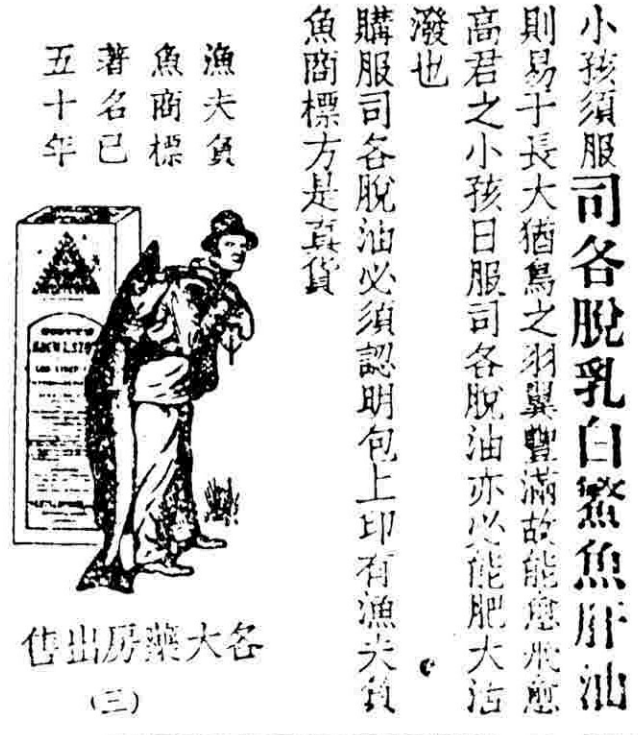 小孩須服司各脫乳白鰵魚肝油
則易于長大猶鳥之羽翼豐滿故能愈飛愈
高君之小孩日服司各脫油亦必能肥大活
潑也
購服司各脫油必須認明包上印有漁夫負
魚商標方是真貨
漁夫負
魚商標
著名已
五十年
各大藥房出售
(三)